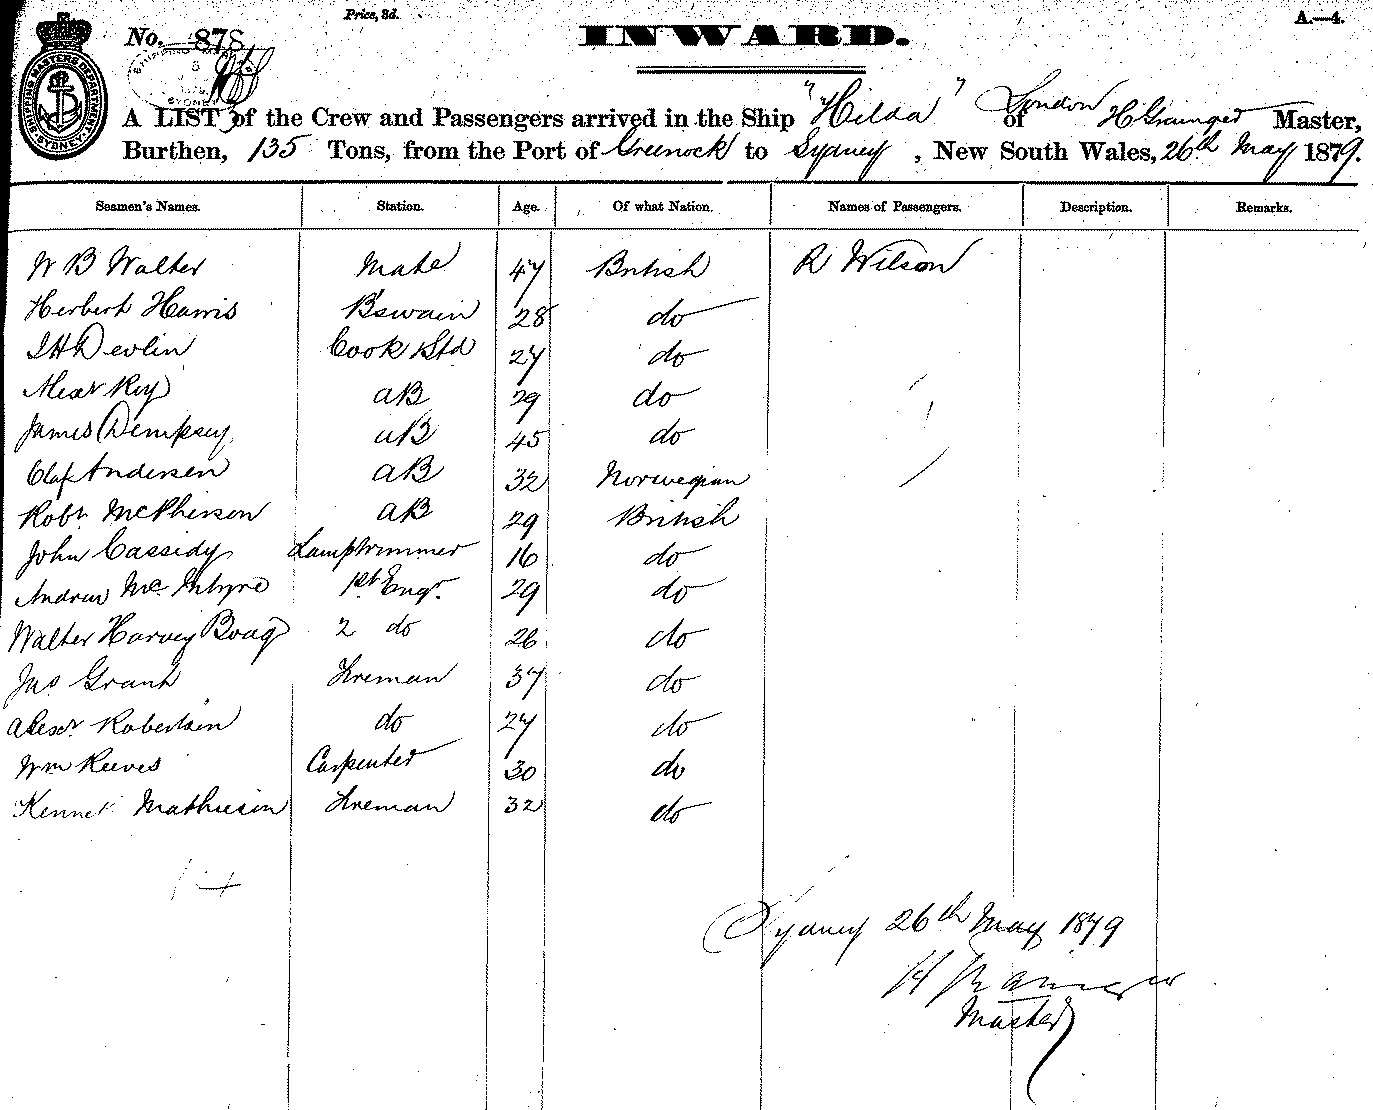 Price, 3d.
A.—4.
No. 878
INWARD.
SHIPPING MASTERS DEPARTMENT SYDNEY
SYDNEY
A LIST of the Crew and Passengers arrived in the Ship "Hilda" of London H Grainger Master,
Burthen, 135 Tons, from the Port of Greenock to Sydney, New South Wales, 26th May 1879.
Seamen's Names. Station. Age. Of what Nation. Names of Passengers. Description. Remarks.
W B Walter Mate 47 British R Wilson
Herbert Harris B'swain 28 do
J H Devlin Cook Std 27 do
Alexr Roy AB 29 do
James Dempsey AB 45 do
Olaf Andersen AB 32 Norwegian
Robt McPherson AB 29 British
John Cassidy Lamptrimmer 16 do
Andrew McIntyre 1st Engr. 29 do
Walter Harvey Boag 2 do 26 do
Jas Grant Fireman 37 do
Alexr Robertson do 27 do
Wm Reeves Carpenter 30 do
Kennet Mathieson Fireman 32 do
14
Sydney 26th May 1879
H Grainger
Master